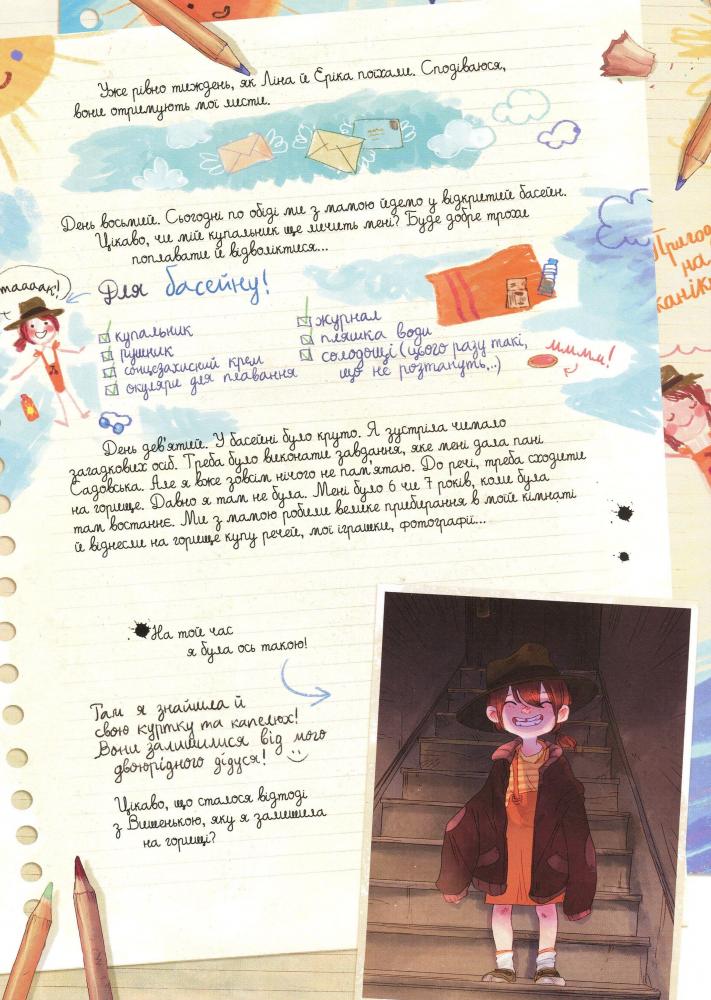 Уже рівно тиждень, як Ліна й Еріка поїхали. Сподіваюся,
вони отримують мої листи.
День восьмий. Сьогодні по обіді ми з мамою йдемо у відкритий басейн.
Цікаво, чи мій купальник ще личить мені? Буде добре трохи
поплавати й відволіктися...
Для басейну!
купальник
рушник
сонцезахисний крем
окуляри для плавання
журнал
пляшка води
солодощі (цього разу такі,
що не розтануть...)
мммм!
День дев'ятий. У басейні було круто. Я зустріла чимало
загадкових осіб. Треба було виконати завдання, яке мені дала пані
Садовська. Але я вже зовсім нічого не пам'ятаю. До речі, треба сходити
на горище. Давно я там не була. Мені було 6 чи 7 років, коли була
там востаннє. Ми з мамою робили велике прибирання в моїй кімнаті
й віднесли на горище купу речей, мої іграшки, фотографії...
На той час
я була ось такою!
Там я знайшла й
свою куртку та капелюх!
Вони залишилися від мого
двоюрідного дідуся!
Цікаво, що сталося відтоді
з Вишенькою, яку я залишила
на горищі?